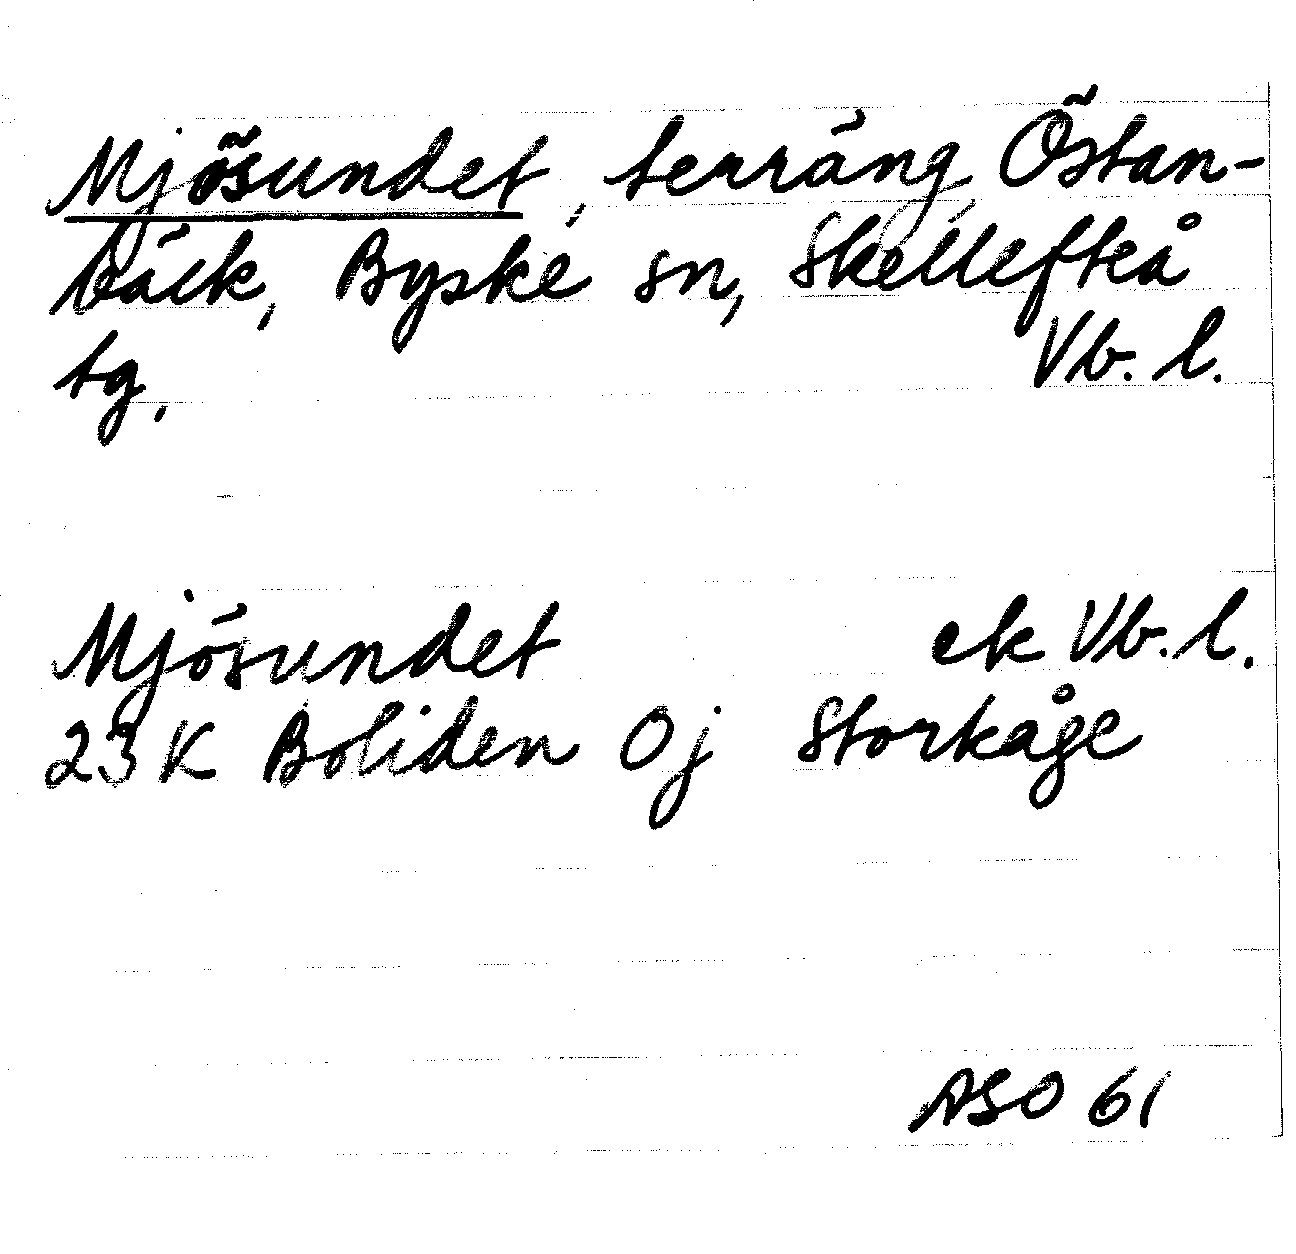 Mjösundet, terräng, Östan-
bäck, Byske sn, Skellefteå
tg, Vb. l.
Mjösundet ek Vb. l.
23 K Boliden 0j Storkåge
ASO 61